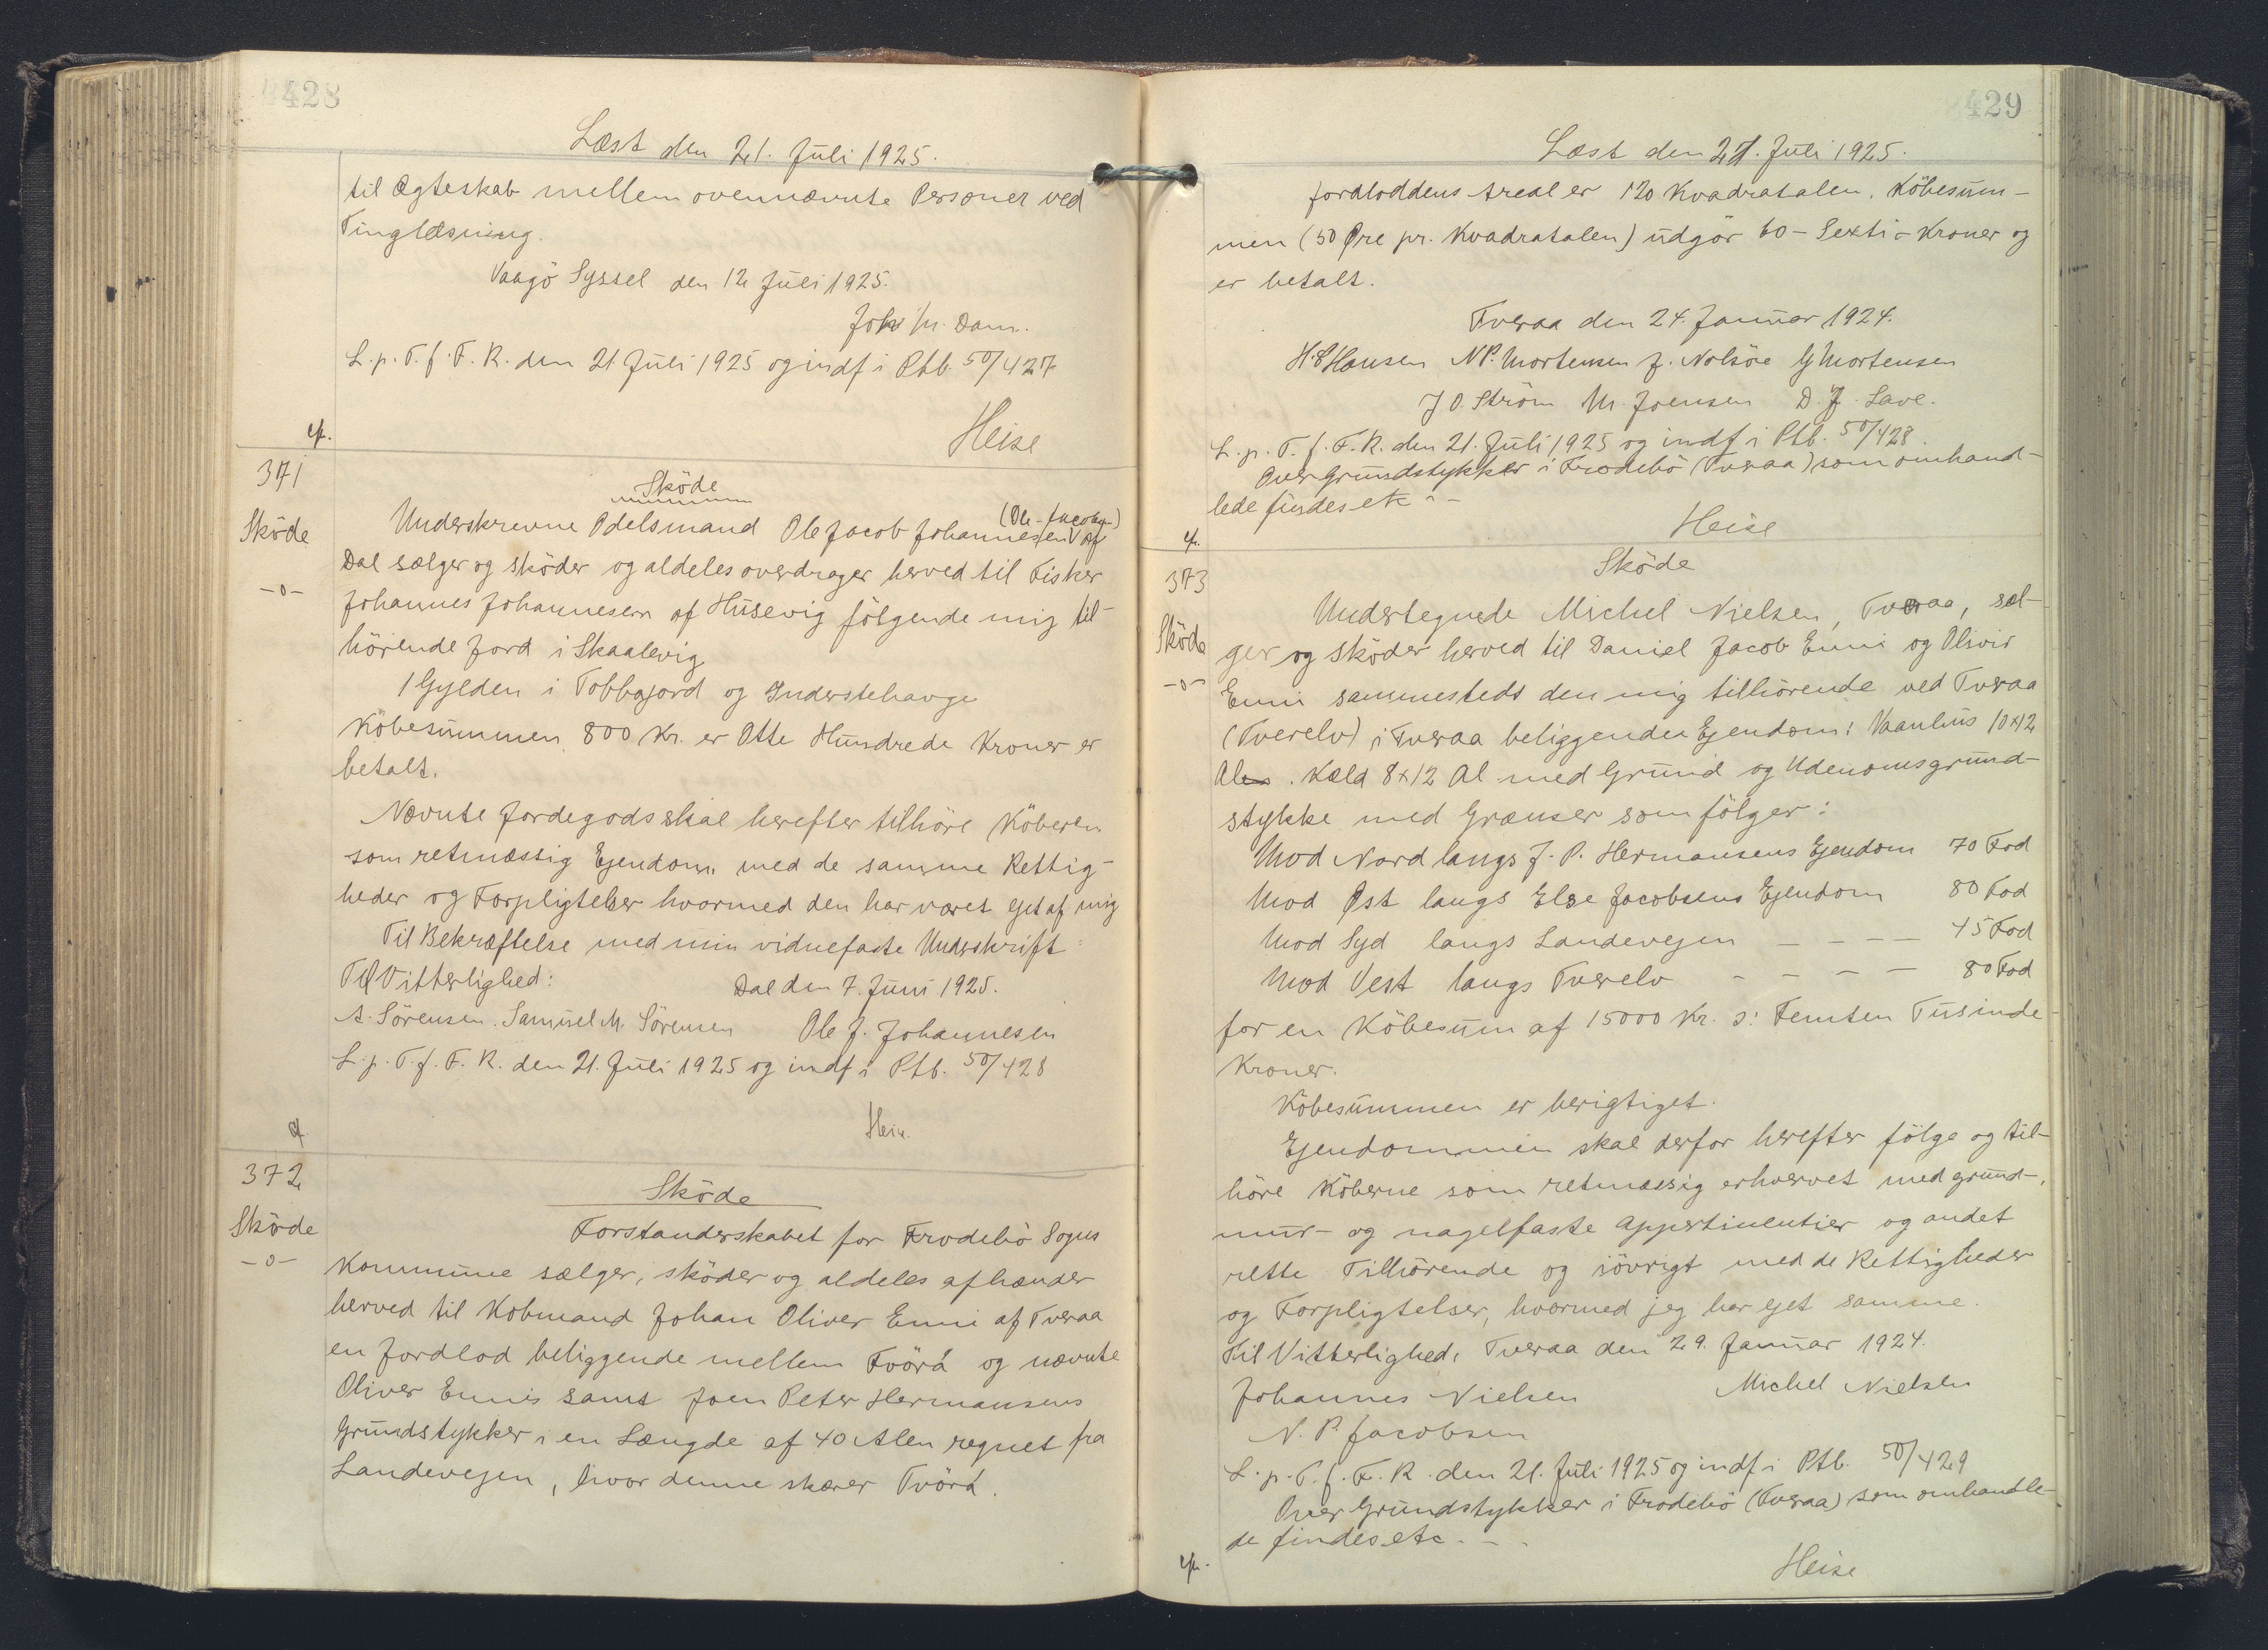 428
Læst den 21. Juli 1925.
til Ægteskab mellem ovennævnte Personer ved
Tinglæsning.
Vaagö Syssel den 12 Juli 1925.
Joh. M. Dam.
L. p. T. f. F. R. den 21 Juli 1925 og indf i Ptb. 50/427
Heise
371
Sköde
-o-
Sköde
(Ole-Jacob)
Underskrevne Odelsmand Ole Jacob Johannesen af
Dal sælger og sköder og aldeles overdrager herved til Fisker
Johannes Johannesen af Husevig fölgende mig til-
hörende Jord i Skaalevig
1 Gylden i Tobbajord og Inderstehavge
Köbesummen 800 Kr. er Otte Hundrede Kroner er
betalt.
Nævnte Jordegods skal herefter tilhöre Köberen
som retmæssig Ejendom med de samme Rettig-
heder og Forpligtelser hvormed den har været ejet af mig
Til Bekræftelse med min vidnefaste Underskrift
Til Vitterlighed:
Dal den 7. Juni 1925.
A. Sörensen. Samuel M. Sörensen Ole J. Johannesen
L. p. T. f. F. R. den 21. Juli 1925 og indf i Ptb. 50/428
Heise
372
Sköde
-o-
Sköde
Forstanderskabet for Frodebö Sogns
Kommune sælger, sköder og aldeles afhænder
herved til Kobmand Johan Oliver Enni af Tveraa
en Jordlod beliggende mellem Tvörá og nævnte
Oliver Ennis samt Joen Peter Hermansens
Grundstykker i en Længde af 40 Alen regnet fra
Landevejen, hvor denne skærer Tvörá.
429
Læst den 21. Juli 1925.
Jordloddens Areal er 120 Kvadratalen. Köbesum-
men (50 Øre pr. Kvadratalen) udgör 60 - Sexti - Kroner og
er betalt.
Tveraa den 24. Januar 1924.
H. P Hansen N P. Mortensen J. Nolsöe G Mortensen
J O. Ström M. Joensen D. J. Lave.
L. p. T. f. F. R. den 21. Juli 1925 og indf i Ptb. 50/428.
Over Grundstykker i Frodebö (Tveraa) som omhand-
lede findes etc -
Heise
373
Sköde
-o-
Sköde
Undertegnede Michel Nielsen, Tveraa, sæl-
ger og sköder herved til Daniel Jacob Enni og Olivir
Enni sammesteds den mig tilhörende ved Tveraa
(Tverelv) i Tveraa beliggende Ejendom: Vaanhus 10x12
Alen. Kæld 8x12 Al med Grund og Udenomsgrund-
stykke med Grænser som fölger:
Mod Nord langs J. P. Hermansens Ejendom 70 Fod
Mod Øst langs Else Jacobsens Ejendom 80 Fod
Mod Syd langs Landevejen - - - - 45 Fod
Mod Vest langs Tverelv - - - - 80 Fod
for en Köbesum af 15000 Kr. ɔ: Femten Tusinde
Kroner.
Köbesummen er berigtiget.
Ejendommen skal derfor herefter fölge og til-
höre Köberne som retmæssig erhvervet med grund-,
mur- og nagelfaste Appertinentier og andet
rette Tilhörende og iövrigt med de Rettigheder
og Forpligtelser, hvormed jeg har ejet samme.
Til Vitterlighed. Tveraa den 29. Januar 1924.
Johannes Nielsen Michel Nielsen
N. P. Jacobsen
L. p. T. f. F. R. den 21. Juli 1925 og indf i Ptb. 50/429
Over Grundstykker i Frodebö (Tveraa) som omhandle-
de findes etc. - -
Heise